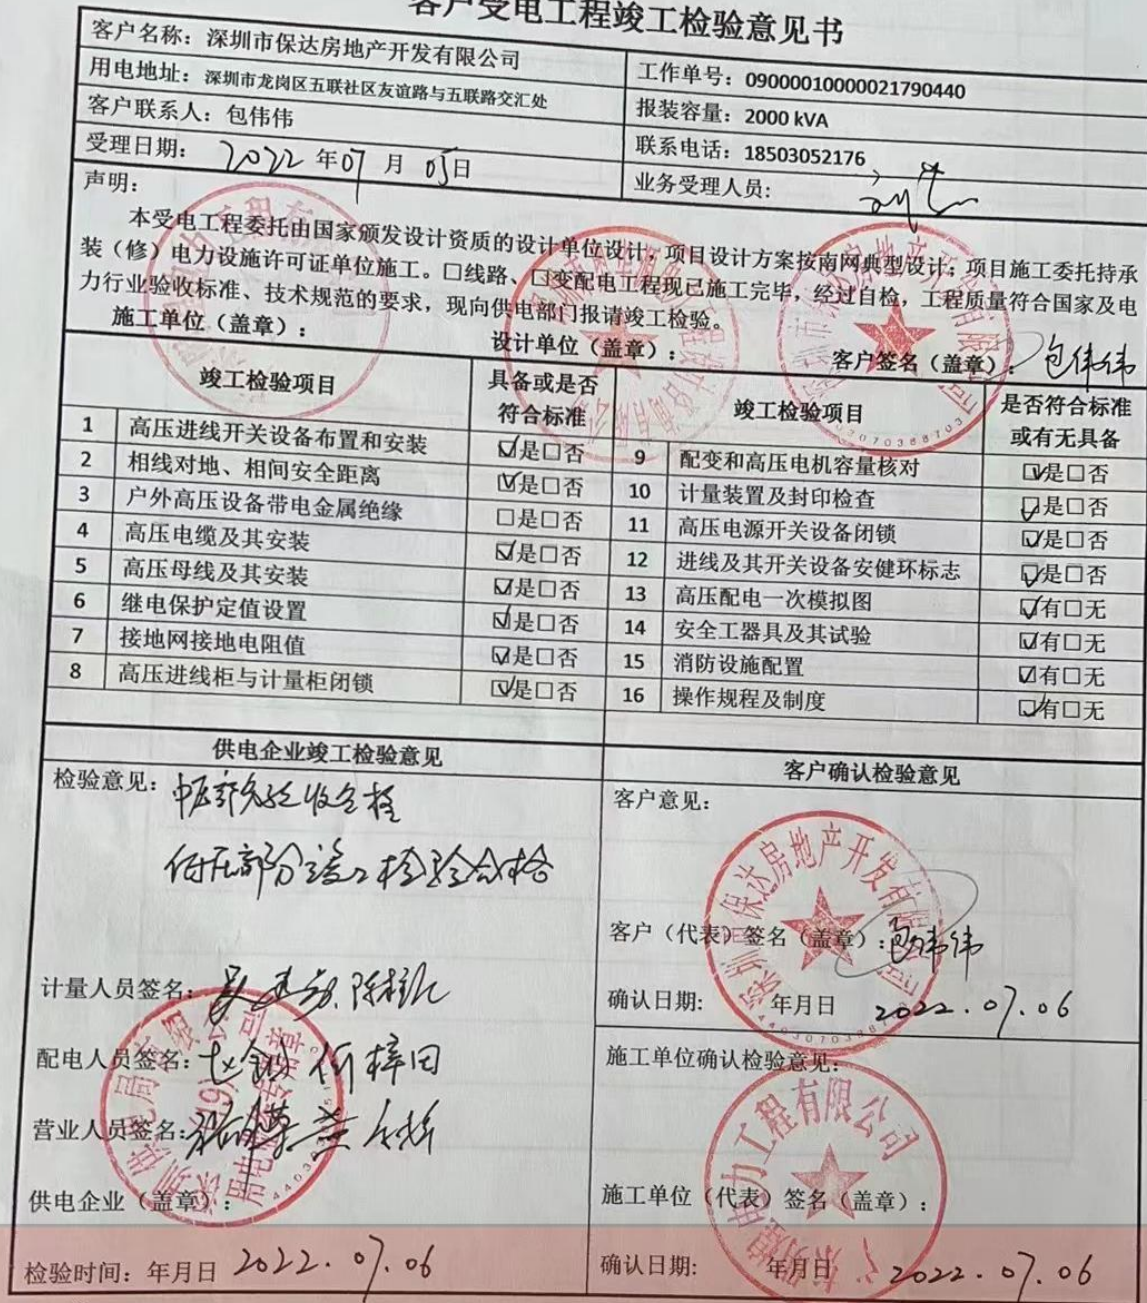 客户受电工程竣工检验意见书
客户名称：深圳市保达房地产开发有限公司
工作单号：09000010000021790440
用电地址：深圳市龙岗区五联社区友谊路与五联路交汇处
报装容量：2000 kVA
客户联系人：包伟伟
联系电话：18503052176
受理日期：2022年07月05日
业务受理人员：
声明：
本受电工程委托由国家颁发设计资质的设计单位设计，项目设计方案按南网典型设计；项目施工委托持承
装（修）电力设施许可证单位施工。□线路、□变配电工程现已施工完毕，经过自检，工程质量符合国家及电
力行业验收标准、技术规范的要求，现向供电部门报请竣工检验。
施工单位（盖章）：
设计单位（盖章）：
客户签名（盖章）：包伟伟
竣工检验项目
具备或是否
符合标准
竣工检验项目
是否符合标准
或有无具备
1 高压进线开关设备布置和安装 ☑是□否
9 配变和高压电机容量核对 ☑是□否
2 相线对地、相间安全距离 ☑是□否
10 计量装置及封印检查 ☑是□否
3 户外高压设备带电金属绝缘 □是□否
11 高压电源开关设备闭锁 ☑是□否
4 高压电缆及其安装 ☑是□否
12 进线及其开关设备安健环标志 ☑是□否
5 高压母线及其安装 ☑是□否
13 高压配电一次模拟图 ☑有□无
6 继电保护定值设置 ☑是□否
14 安全工器具及其试验 ☑有□无
7 接地网接地电阻值 ☑是□否
15 消防设施配置 ☑有□无
8 高压进线柜与计量柜闭锁 ☑是□否
16 操作规程及制度 ☑有□无
供电企业竣工检验意见
客户确认检验意见
检验意见：
低压部分竣工检验合格
计量人员签名：
配电人员签名：
营业人员签名：
供电企业（盖章）：
检验时间：年月日 2022.07.06
客户意见：
深圳市保达房地产开发有限公司
客户（代表）签名（盖章）：包伟伟
确认日期：年月日 2022.07.06
施工单位确认检验意见：
电力工程有限公司
施工单位（代表）签名（盖章）：
确认日期：年月日 2022.07.06